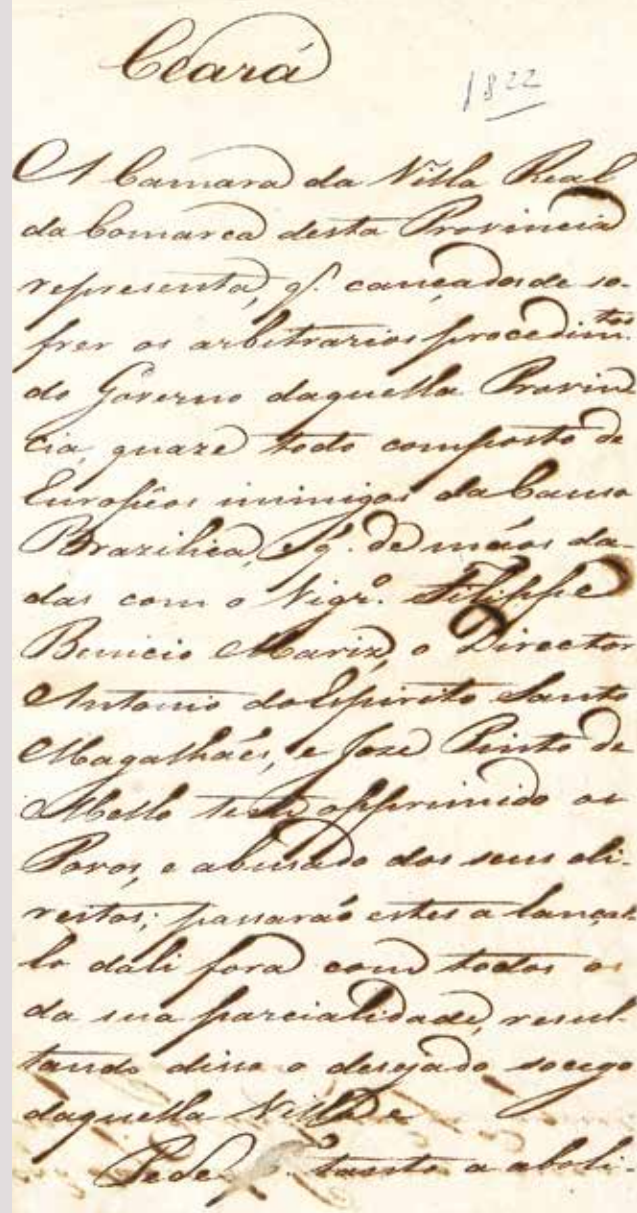 Ceará
1822
A Camara da Villa Real
da Comarca desta Provincia
representa, q. cançados de so-
frer os arbitrarios procedim.tos
do Governo daquella Provin
cia, quaze todo composto de
Europêos inimigos da Causa
Brazilica, e q. de mãos da-
das com o Vigr.o Filippe
Benicio Mariz, o Director
Antonio do Espirito Santo
Magalhães, e Joze Pinto de
Mello tem opprimido os
Povos, e abusado dos seus di-
reitos; passarão estes a lançal-
lo dali fora com todos os
da sua parcialidade, resul-
tando disso o desejado socego
daquella Villa e
Pede tanto a aboli-